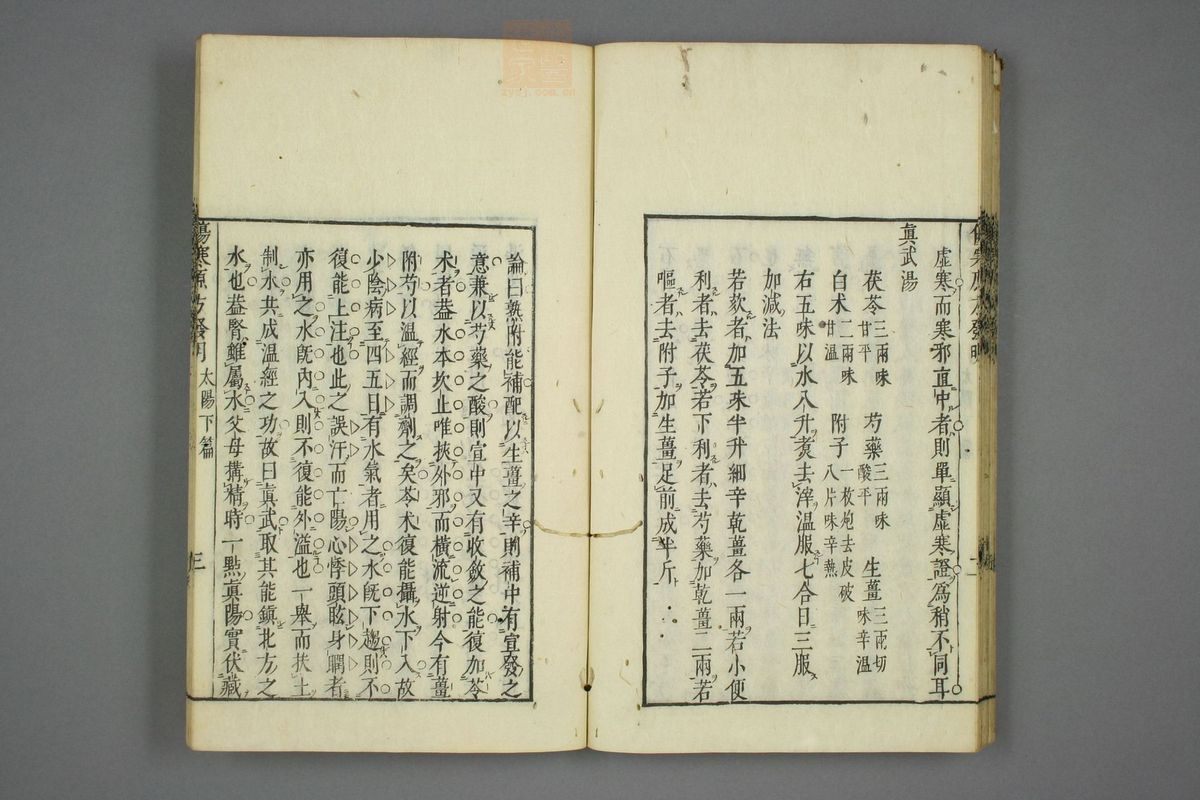 虛寒而寒邪直中者則單顯虛寒證爲稍不同耳
眞武湯
茯苓三兩味甘平 芍藥三兩味酸平 生薑三兩切味辛温
白朮二兩味甘温 附子一枚炮去皮破八片味辛熱
右五味以水八升煮去滓温服七合日三服
加減法
若欬者加五味半升細辛乾薑各一兩若小便
利者去茯苓若下利者去芍藥加乾薑二兩若
嘔者去附子加生薑足前成半斤
論曰熟附能補配以生薑之辛則補中有宣發之
意兼以芍藥之酸則宣中又有收斂之能復加苓
朮者葢水本坎止唯挾外邪而橫流逆射今有薑
附芍以温經而調劑之矣苓朮復能攝水下入故
少陰病至四五日有水氣者用之水旣下趨則不
復能上注也此之誤汗而亡陽心悸頭眩身瞤者
亦用之水旣內入則不復能外溢也一舉而扶土
制水共成温經之功故曰眞武取其能鎮北方之
水也葢腎雖屬水父母搆精時一點眞陽實伏藏
傷寒原方發明 太陽下篇 三